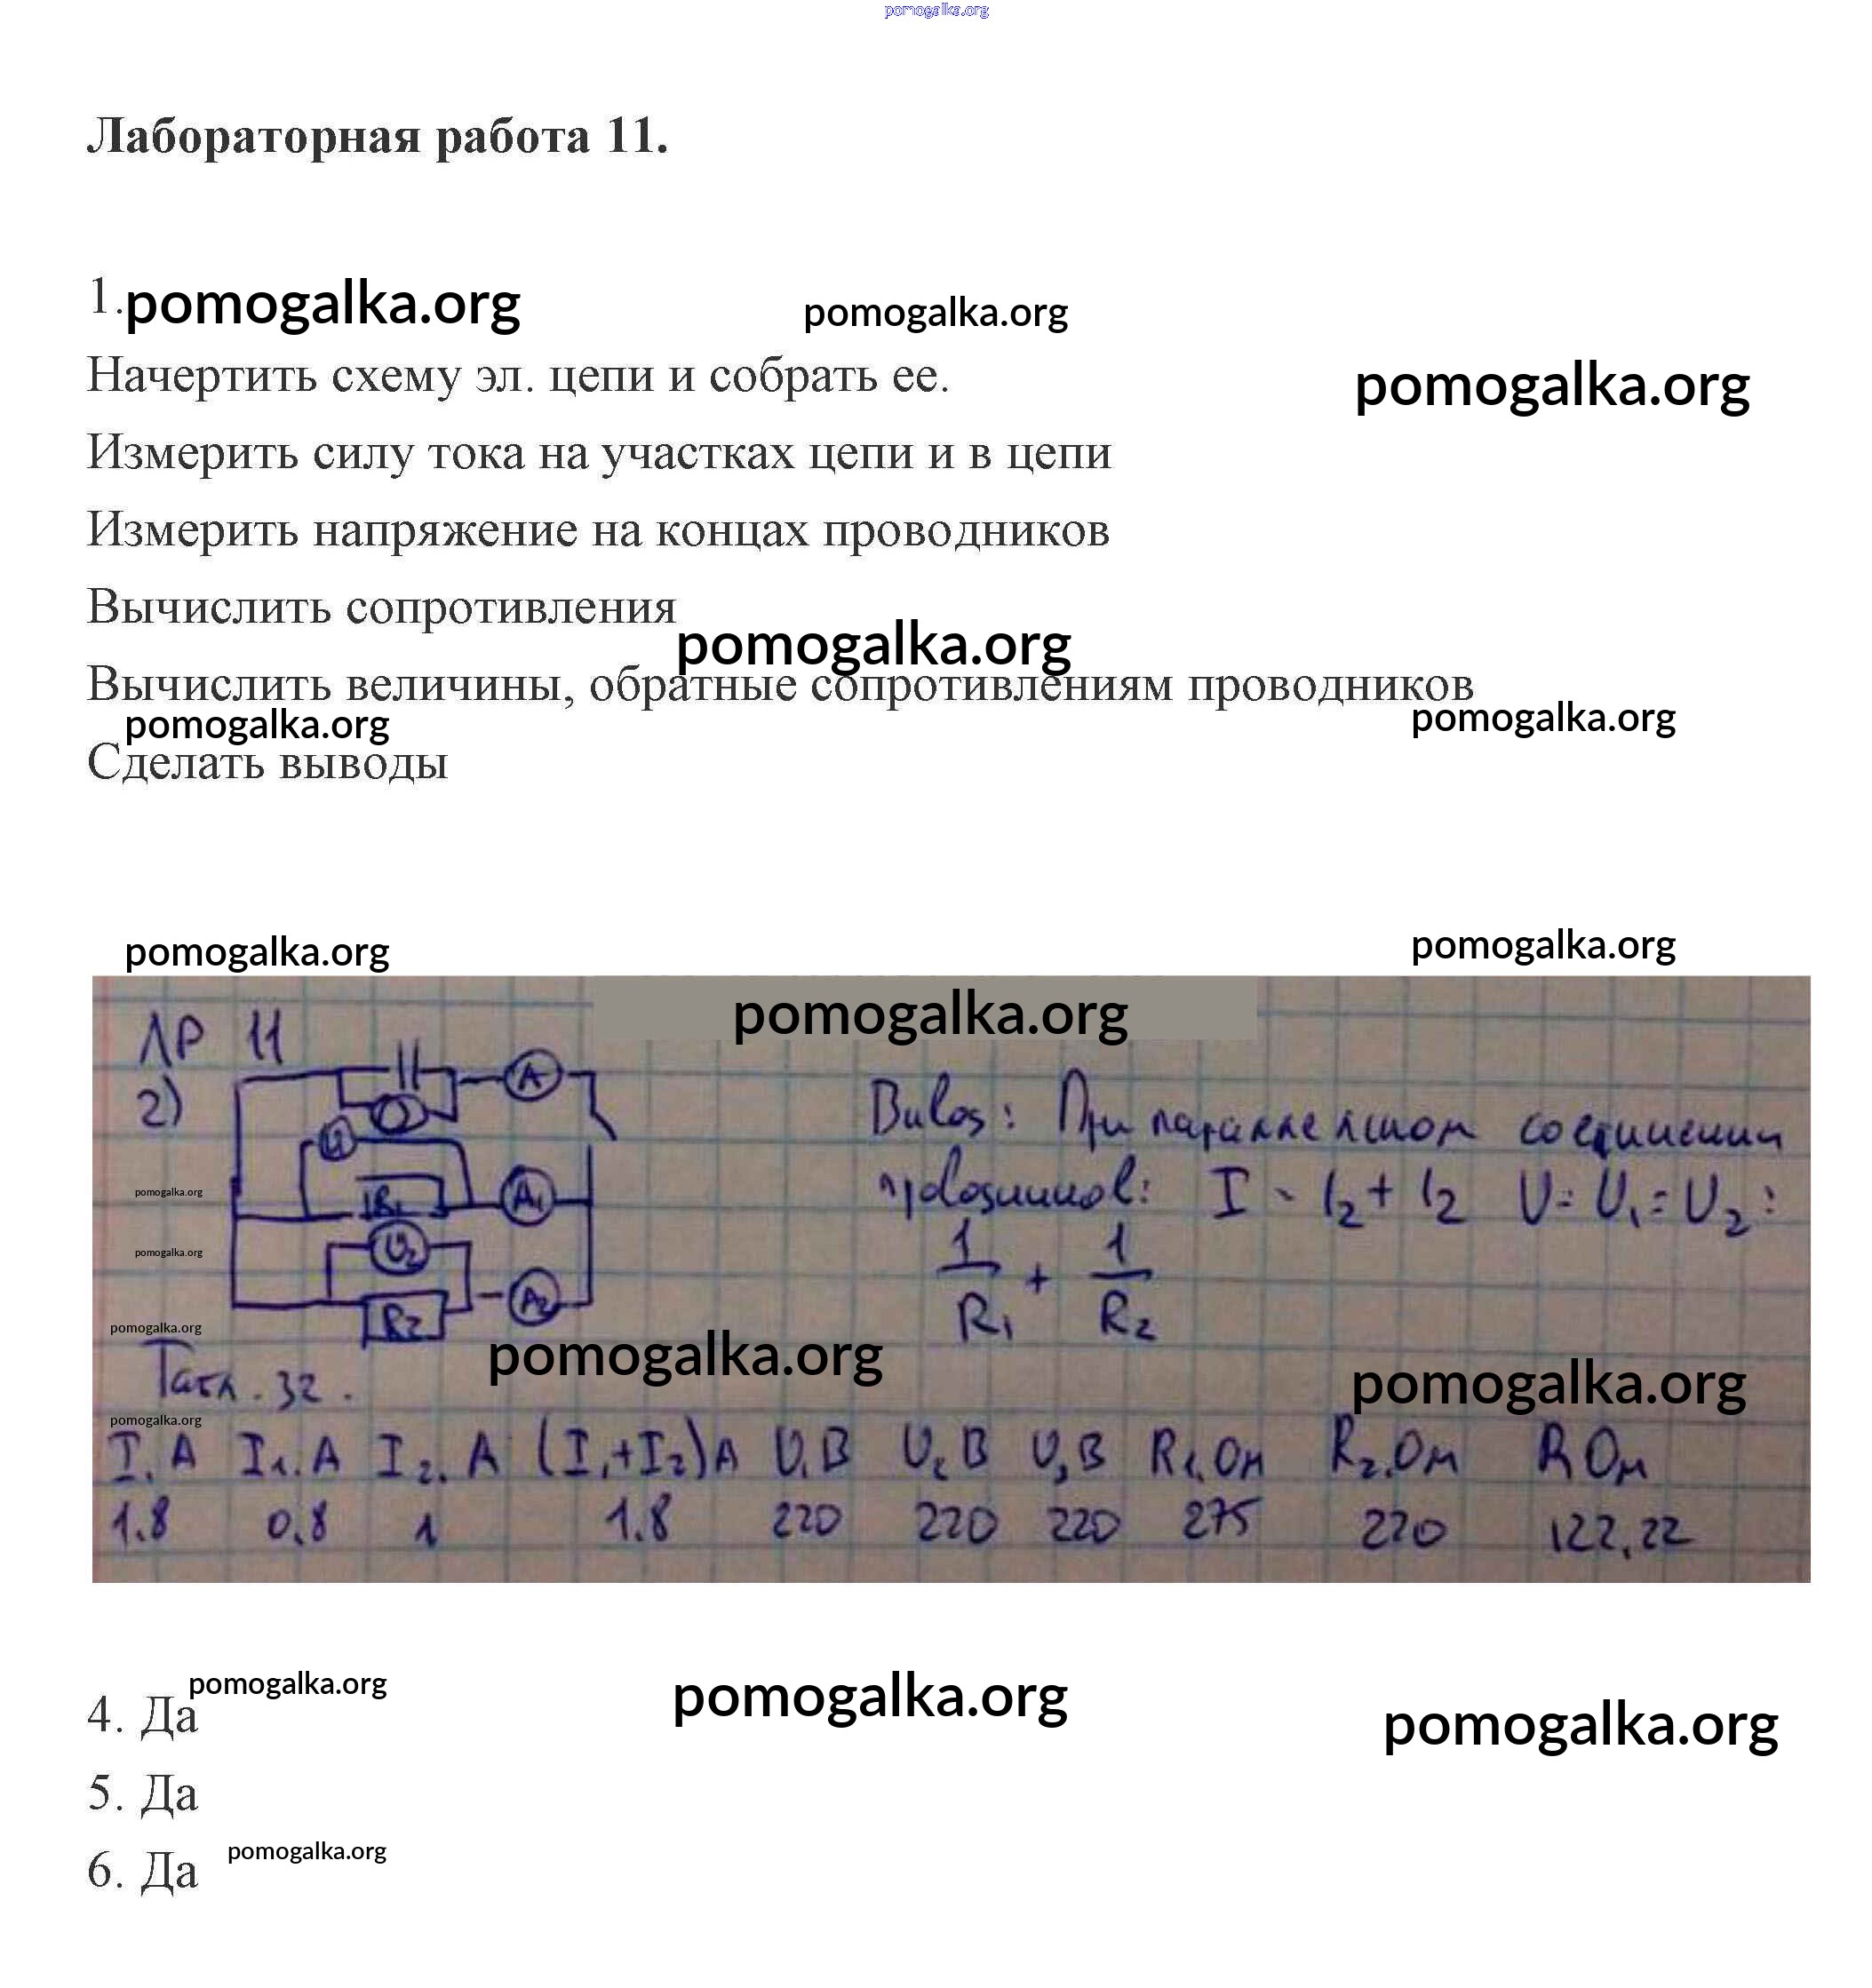 pomogalka.org
Лабораторная работа 11.
1.pomogalka.org pomogalka.org
Начертить схему эл. цепи и собрать ее.
pomogalka.org
Измерить силу тока на участках цепи и в цепи
Измерить напряжение на концах проводников
Вычислить сопротивления
pomogalka.org
Вычислить величины, обратные сопротивлениям проводников
pomogalka.org pomogalka.org
Сделать выводы
pomogalka.org pomogalka.org
pomogalka.org
ЛР 11
2)
A
Вывод: При параллельном соединении
проводников: I - I2 + I2 U = U1 = U2 :
R1 A1
pomogalka.org
U2
pomogalka.org
1/R1 + 1/R2
R2 A2
pomogalka.org
pomogalka.org
pomogalka.org
Табл. 32.
pomogalka.org
I, A I1, A I2, A (I1+I2) A U1 В U2 В U, В R1, Ом R2, Ом R Ом
1.8 0,8 1 1.8 220 220 220 275 220 122,22
pomogalka.org pomogalka.org pomogalka.org
4. Да
5. Да
6. Да pomogalka.org